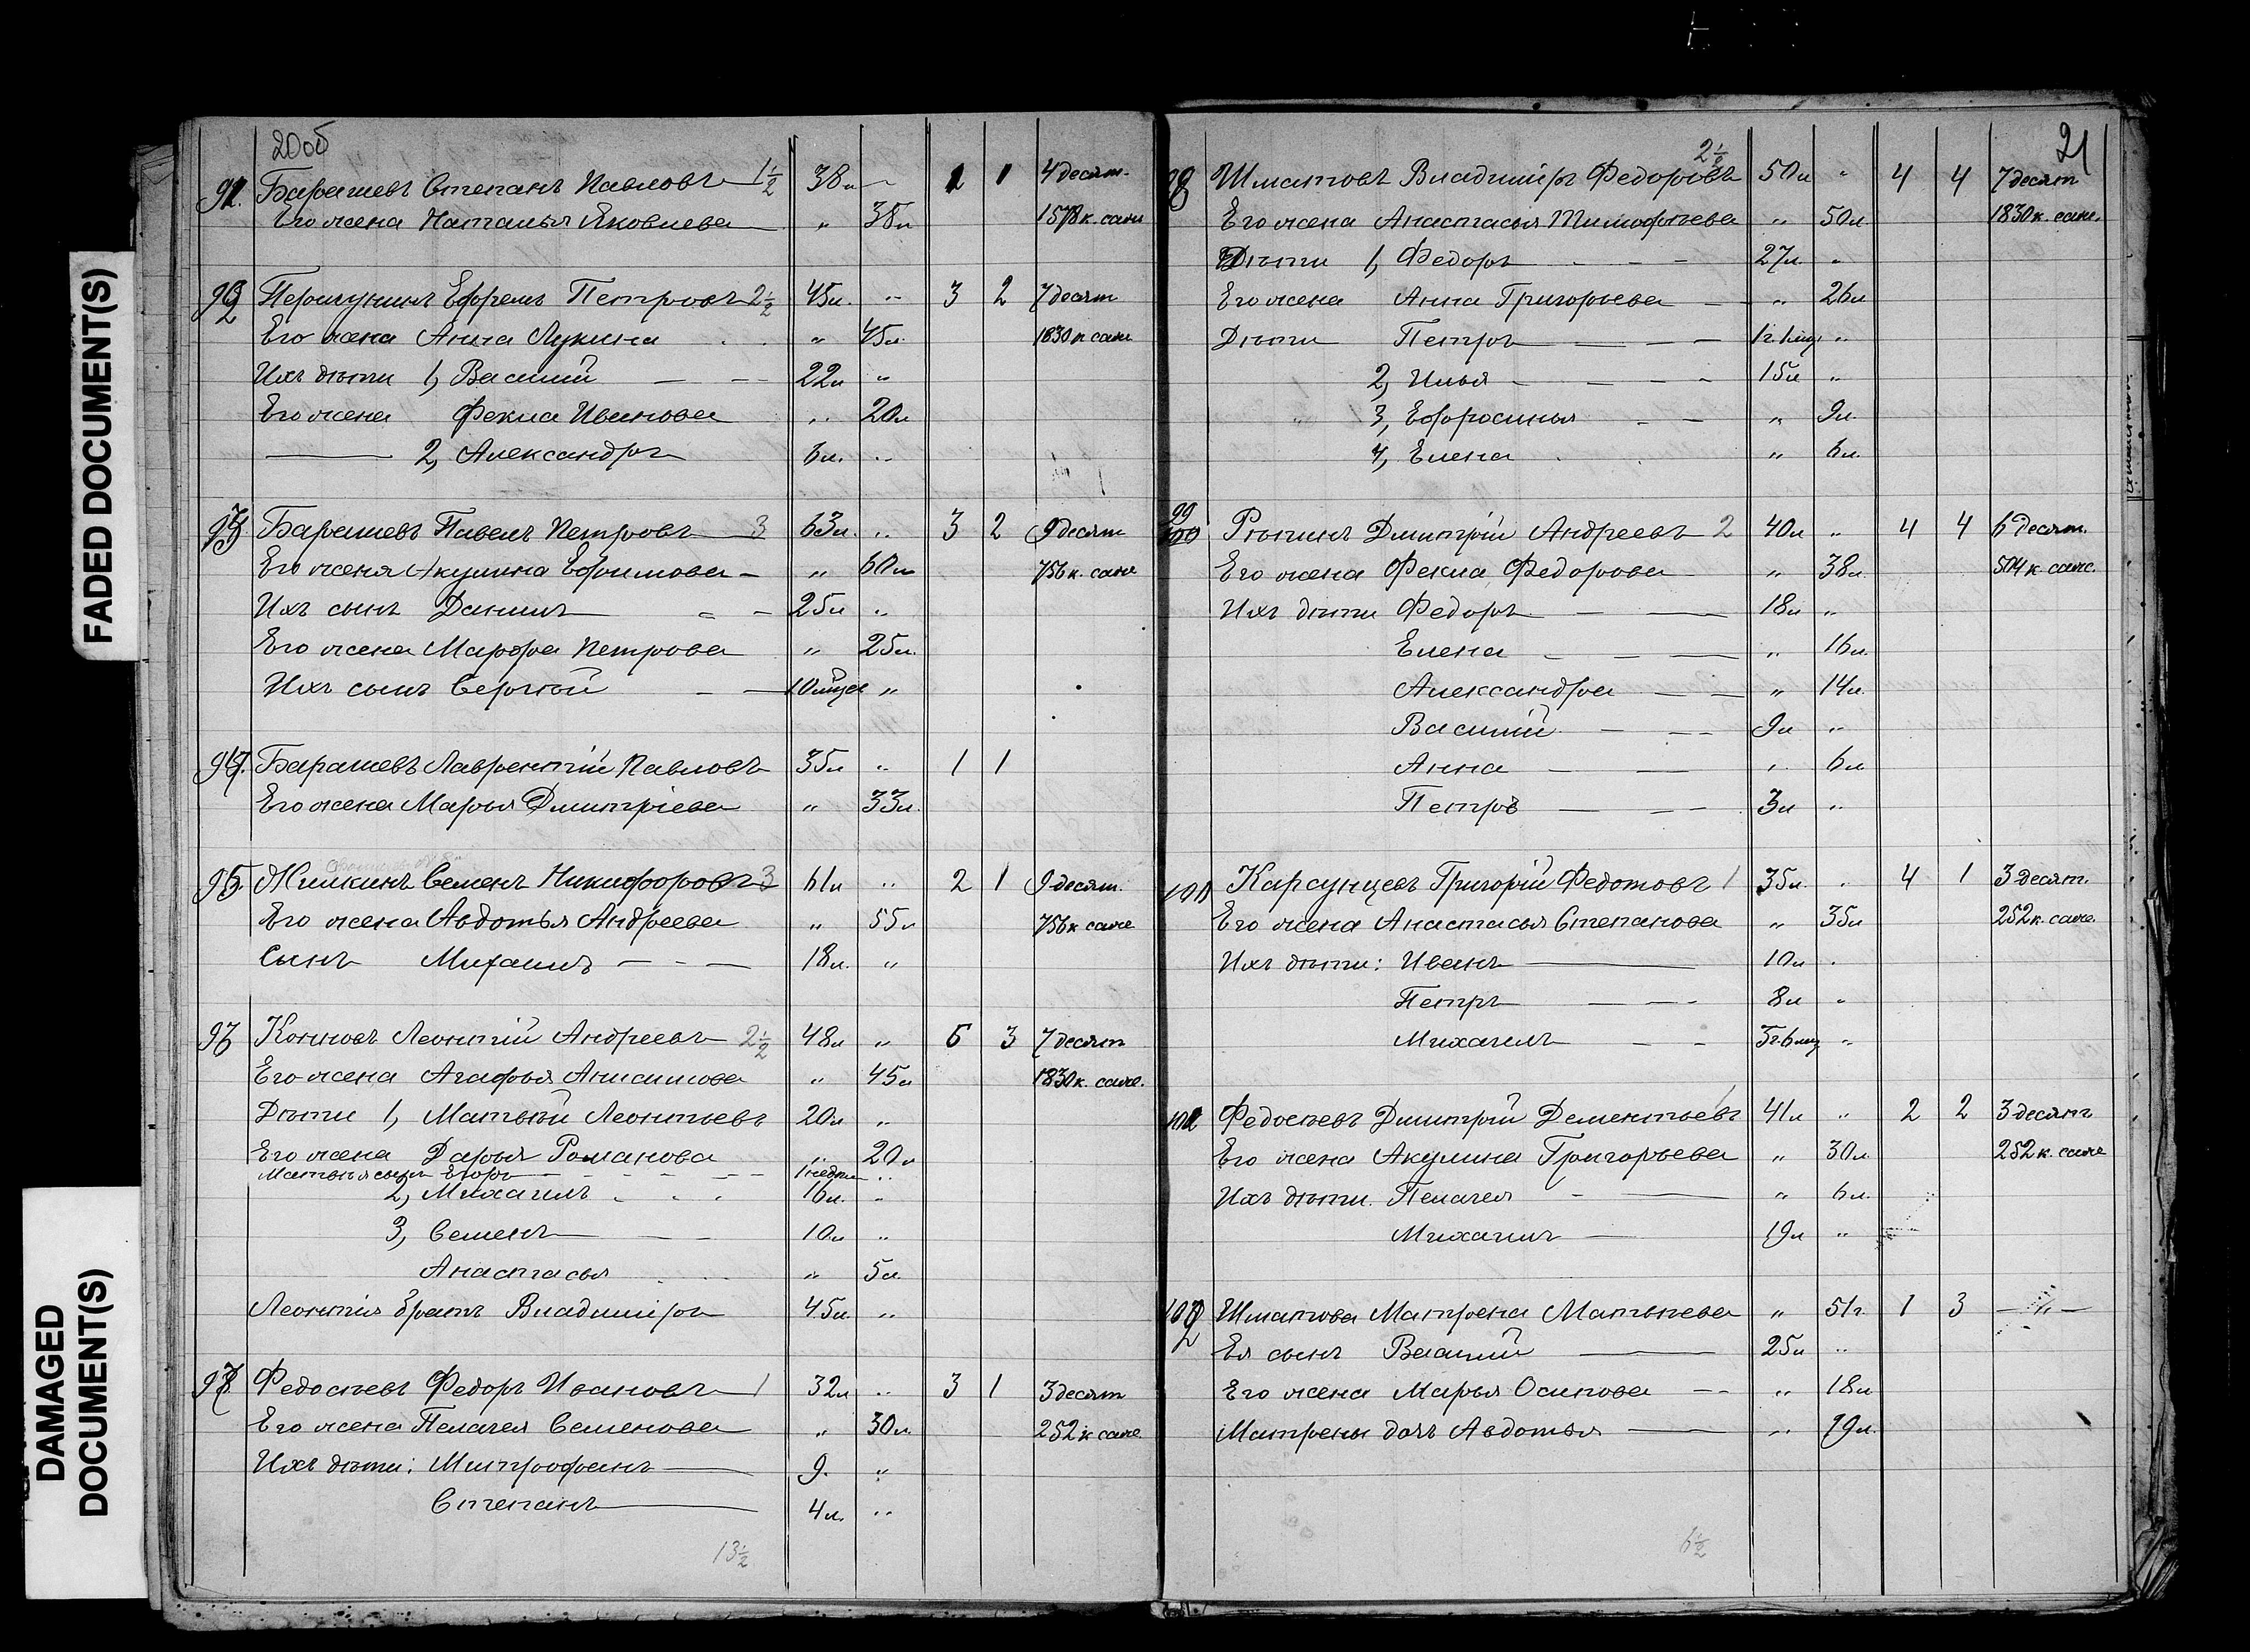 FADED DOCUMENT(S)
DAMAGED DOCUMENT(S)
20об
91. Барашевъ Степанъ Павловъ 1½ 38л „ 1 1 4 десят.
Его жена Наталья Яковлева „ 38л 1578 к. саж
92 Першунинъ Ефремъ Петровъ 2½ 45л. „ 3 2 7 десят
Его жена Анна Лукина „ 45л. 1830 к саж
Ихъ дѣти 1, Василий 22л „
Его жена Фекла Иванова „ 20л
2, Александръ 6л. „
93 Барашевъ Павелъ Петровъ 3 63л. „ 3 2 9 десят
Его жена Акулина Ефимова „ 60л 756 к. саж
Ихъ сынъ Данилъ 25л „
Его жена Марфа Петрова „ 25л.
Ихъ сынъ Сергѣй 10 мѣсе „
94. Барашевъ Лаврентій Павловъ 35л „ 1 1
Его жена Марья Дмитріева „ 33л.
95. Жилкинъ Семенъ Никифоровъ 3 61л „ 2 1 9 десят.
Его жена Авдотья Андреева „ 55л 756 к саж
Сынъ Михаилъ 18л. „
96 Конновъ Леонтій Андреевъ 2½ 48л „ 5 3 7 десят
Его жена Агафья Анисимова „ 45л 1830 к. саж.
Дѣти 1, Матвѣй Леонтьевъ 20л „
Его жена Дарья Романова „ 20л
Матвѣя сынъ Егоръ 1 недѣли „
2, Михаилъ 16л. „
3, Семенъ 10л „
Анастасья „ 5л.
Леонтія братъ Владиміръ 45л. „
97 Федосѣевъ Федоръ Ивановъ 1 32л „ 3 1 3 десят
Его жена Пелагея Семенова „ 30л. 252 к саж.
Ихъ дѣти: Митрофанъ 9. „
Степанъ 4л. „
13½
21
98 Шматовъ Владиміръ Федоровъ 2½ 50л „ 4 4 7 десят
Его жена Анастасья Тимофѣева „ 50л. 1830 к. саж.
Дѣти 1, Федоръ 27л. „
Его жена Анна Григорьева „ 26л
Дѣти Петръ 1г. 1 мѣс „
2, Илья 15л „
3, Ефросинья „ 9л.
4, Елена „ 6л.
99 Рѣпинъ Дмитрій Андреевъ 2 40л „ 4 4 6 десят.
Его жена Фекла Федорова „ 38л. 504 к саж.
Ихъ дѣти Федоръ 18л „
Елена „ 16л.
Александра „ 14л.
Василий 9л „
Анна „ 6л
Петръ 3л „
100 Карсунцевъ Григорій Федотовъ 1 35л. „ 4 1 3 десят.
Его жена Анастасья Степанова „ 35л 252 к. саж.
Ихъ дѣти: Иванъ 10л „
Петръ 8л „
Михаилъ 3г. 6 мѣс „
101 Федосѣевъ Дмитрій Дементьевъ 1 41л „ 2 2 3 десят
Его жена Акулина Григорьева „ 30л. 252 к. саж
Ихъ дѣти. Пелагея „ 6л.
Михаилъ 19л „
102 Шматова Матрена Матвѣева „ 51г. 1 3 — „ —
Ея сынъ Василий 25л „
Его жена Марья Осипова „ 18л
Матрены дочь Авдотья „ 19л.
6½